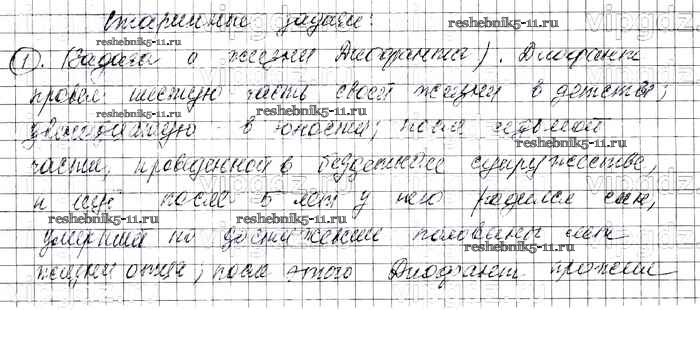 Старинные задачи:
reshebnik5-11.ru
reshebnik5-11.ru
① (Задача о жизни Диофанта). Диофант
провел шестую часть своей жизни в детстве,
reshebnik5-11.ru
двенадцатую - в юности; после седьмой
части, проведенной в бездетном супружестве,
и ещё после 5 лет у него родился сын,
reshebnik5-11.ru
reshebnik5-11.ru
умерший по достижении половины лет
reshebnik5-11.ru
жизни отца, после этого Диофант прожил